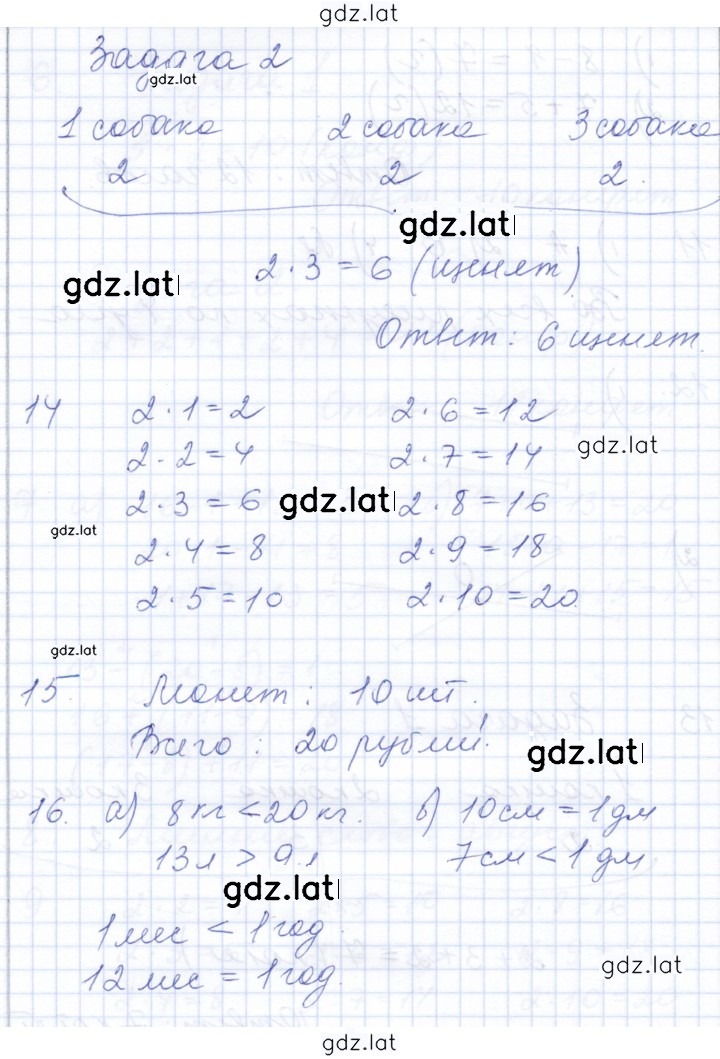 gdz.lat
Задача 2
gdz.lat
1 собака 2 собака 3 собака
2 2 2
gdz.lat
2 · 3 = 6 (щенят)
gdz.lat
Ответ: 6 щенят.
14 2 · 1 = 2 2 · 6 = 12
2 · 2 = 4 2 · 7 = 14 gdz.lat
2 · 3 = 6 gdz.lat 2 · 8 = 16
gdz.lat
2 · 4 = 8 2 · 9 = 18
2 · 5 = 10 2 · 10 = 20.
gdz.lat
15. Монет: 10 шт.
Всего: 20 рублей. gdz.lat
16. а) 8 кг < 20 кг. б) 10 см = 1 дм
13 л > 9 л 7 см < 1 дм.
gdz.lat
1 мес < 1 год.
12 мес = 1 год. gdz.lat
gdz.lat